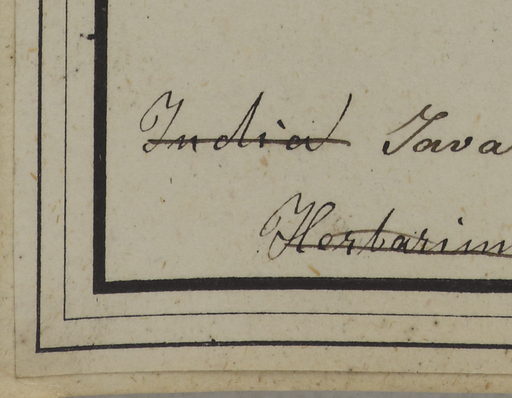 India Java
Herbarium